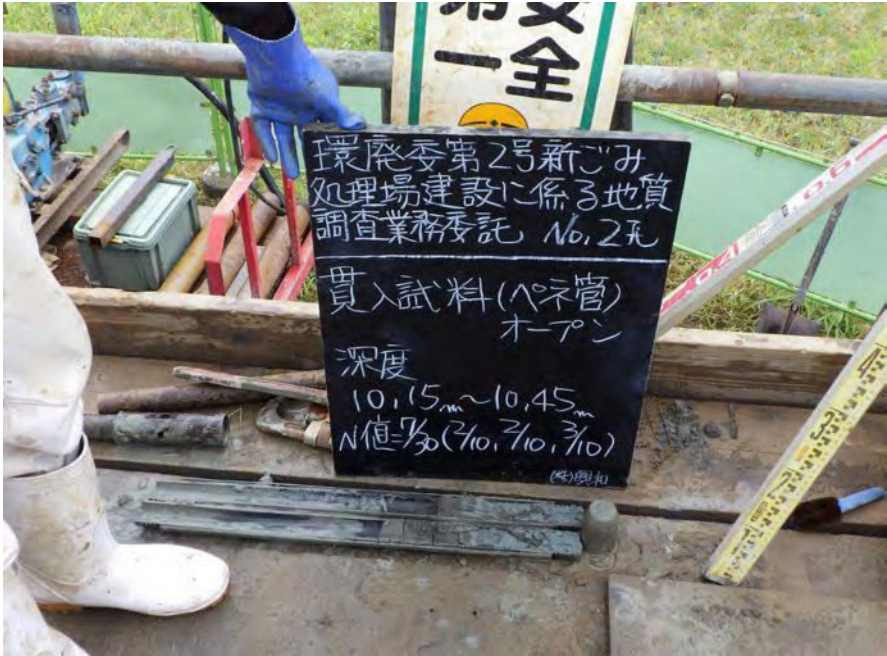 安全
第一
環廃委第2号新ごみ
処理場建設に係る地質
調査業務委託 No.2孔
貫入試料(ペネ管)
オープン
深度
10.15m~10.45m
N値=7/30(2/10,2/10,3/10)
(株)興和